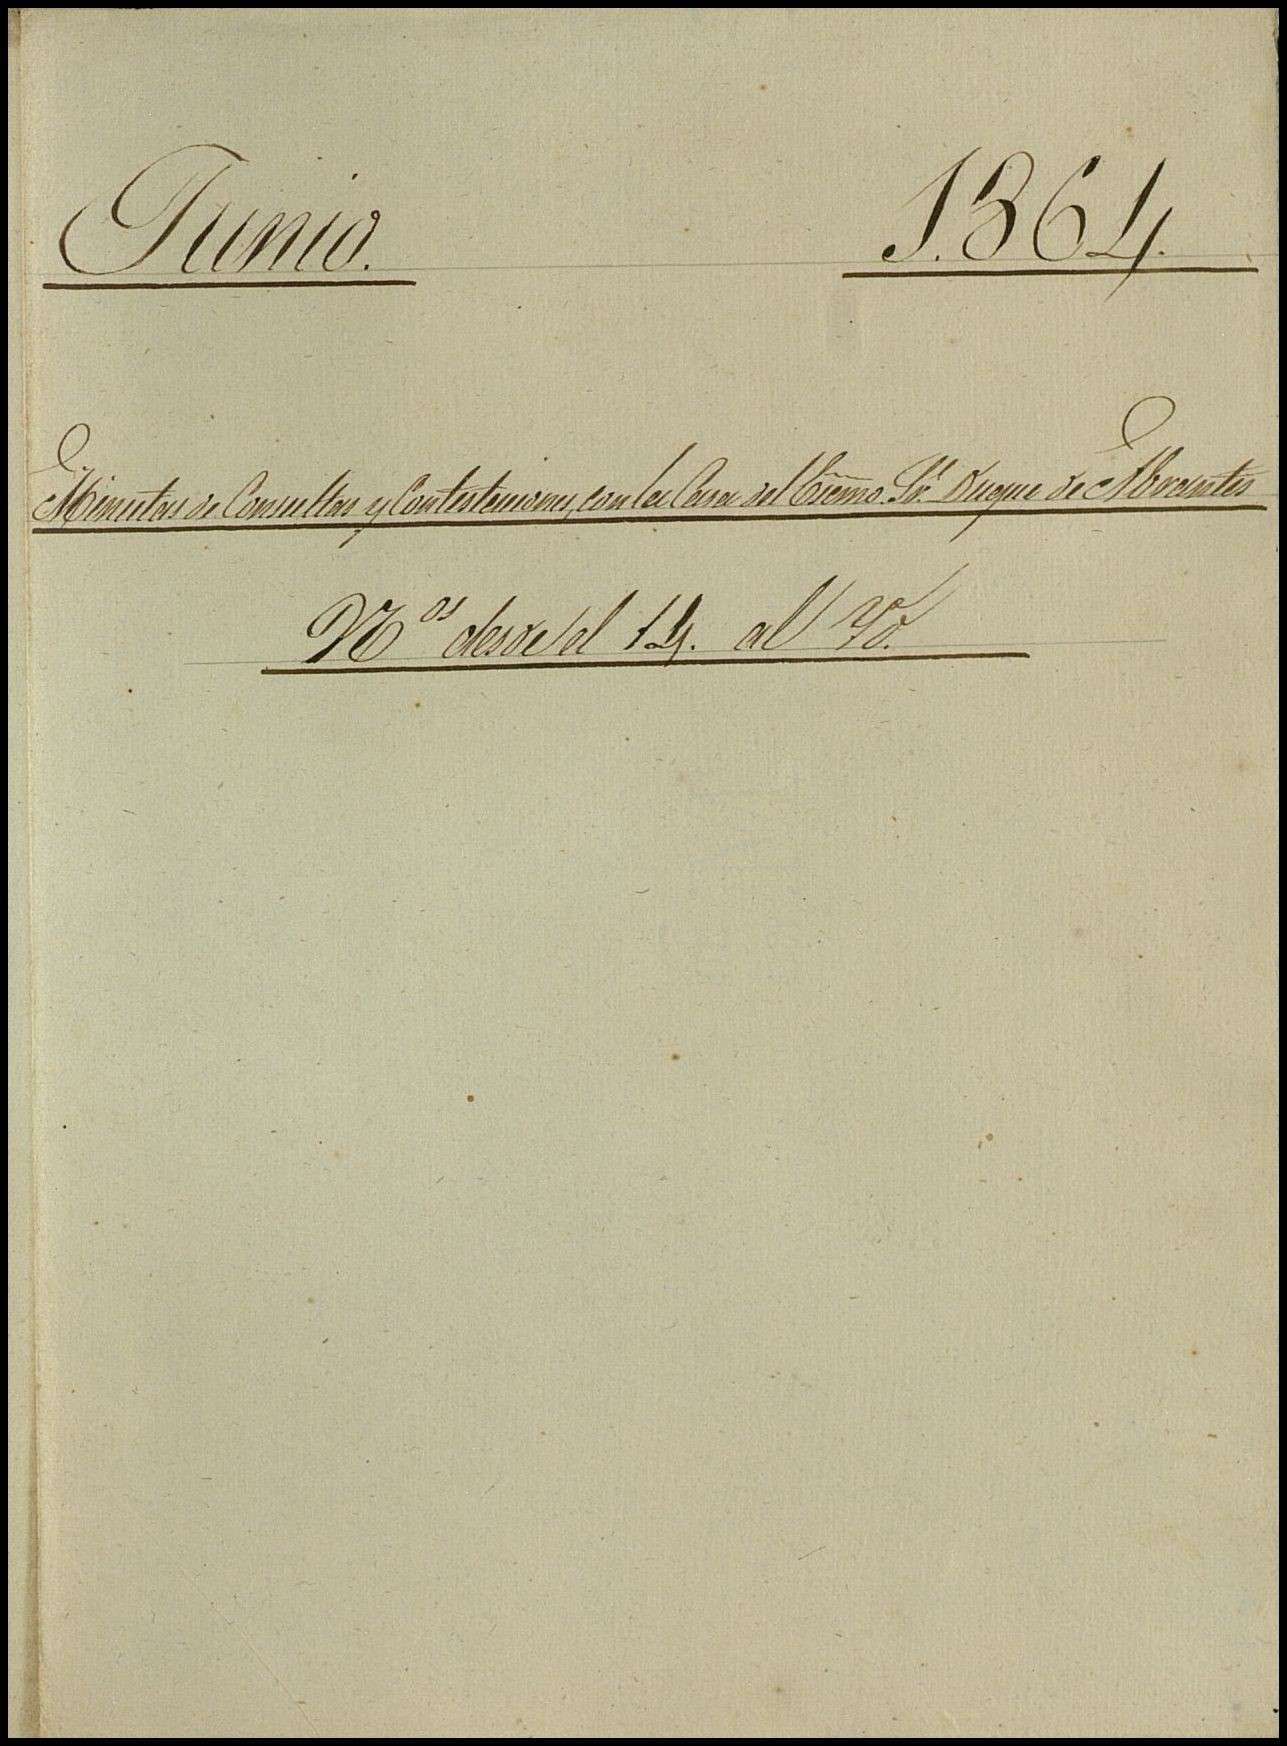 Junio. 1.864.
Minutas de Consultas y Contestaciones, con la Casa del Exc̃mo. Sr. Duque de Abrantes
N.os desde el 14. al